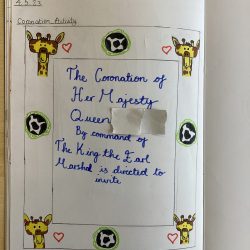 4.5.23
Coronation Activity
The Coronation of
Her Majesty
Queen
By command of
The King the Earl
Marshal is directed to
invite